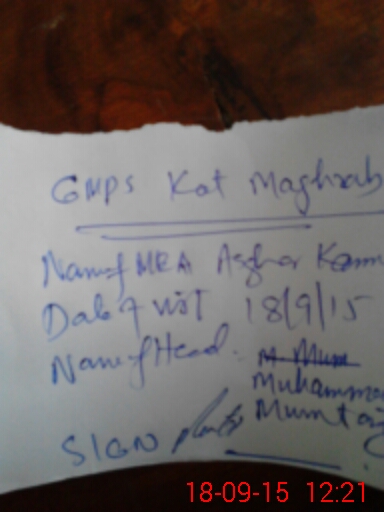 GMPS Kot Maghrab
Name of MEA Asghar
Date of visit 18/9/15
Name of Head. M Mum
Muhammad
Mumtaz
SIGN
18-09-15 12:21